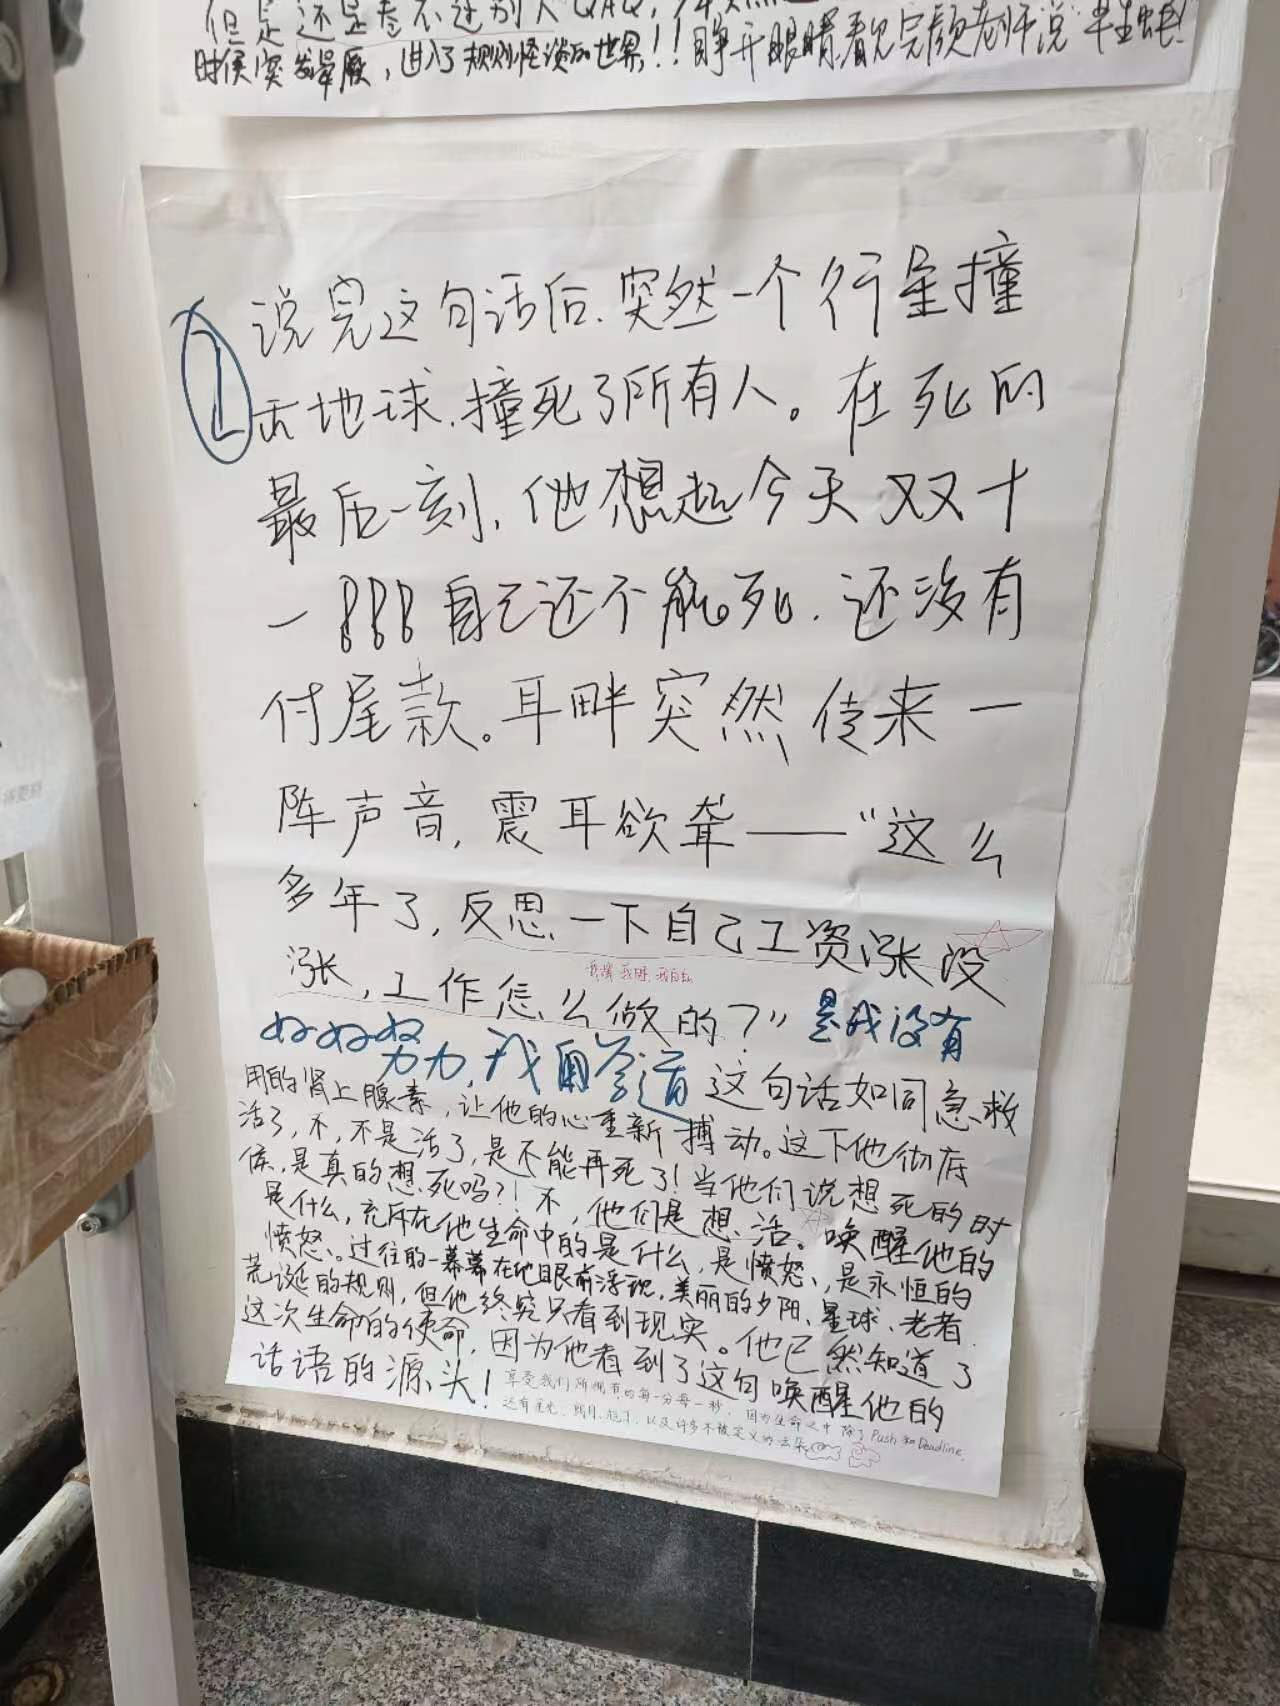 但是还是卷不过别人QAQ,
时候突发晕厥,进入了规则怪谈的世界!!睁开眼睛看见完颜老师说"半生
说完这句话后.突然一个行星撞
地球.撞死了所有人。在死的
最后一刻,他想起今天双十
一!!!自己还不能死.还没有
付尾款。耳畔突然传来一
阵声音,震耳欲聋——"这么
多年了,反思一下自己工资涨没
涨,工作怎么做的?"是我没有
努努努力力,我 这句话如同急救
用的肾上腺素,让他的心重新搏动。这下他彻底
活了,不,不是活了,是不能再死了!当他们说想死的时
候,是真的想死吗?!不,他们是想活。唤醒他的
是什么,充斥在他生命中的是什么,是愤怒,是永恒的
愤怒。过往的一幕幕在他眼前浮现,美丽的夕阳、星球、老者
荒诞的规则,但他终究只看到现实。他已然知道了
这次生命的使命,因为他看到了这句唤醒他的
话语的源头!
享受我们所拥有的每一分每一秒,因为生命之中除了Push和Deadline,
还有星光、朗月、旭日,以及许多不被定义的云朵